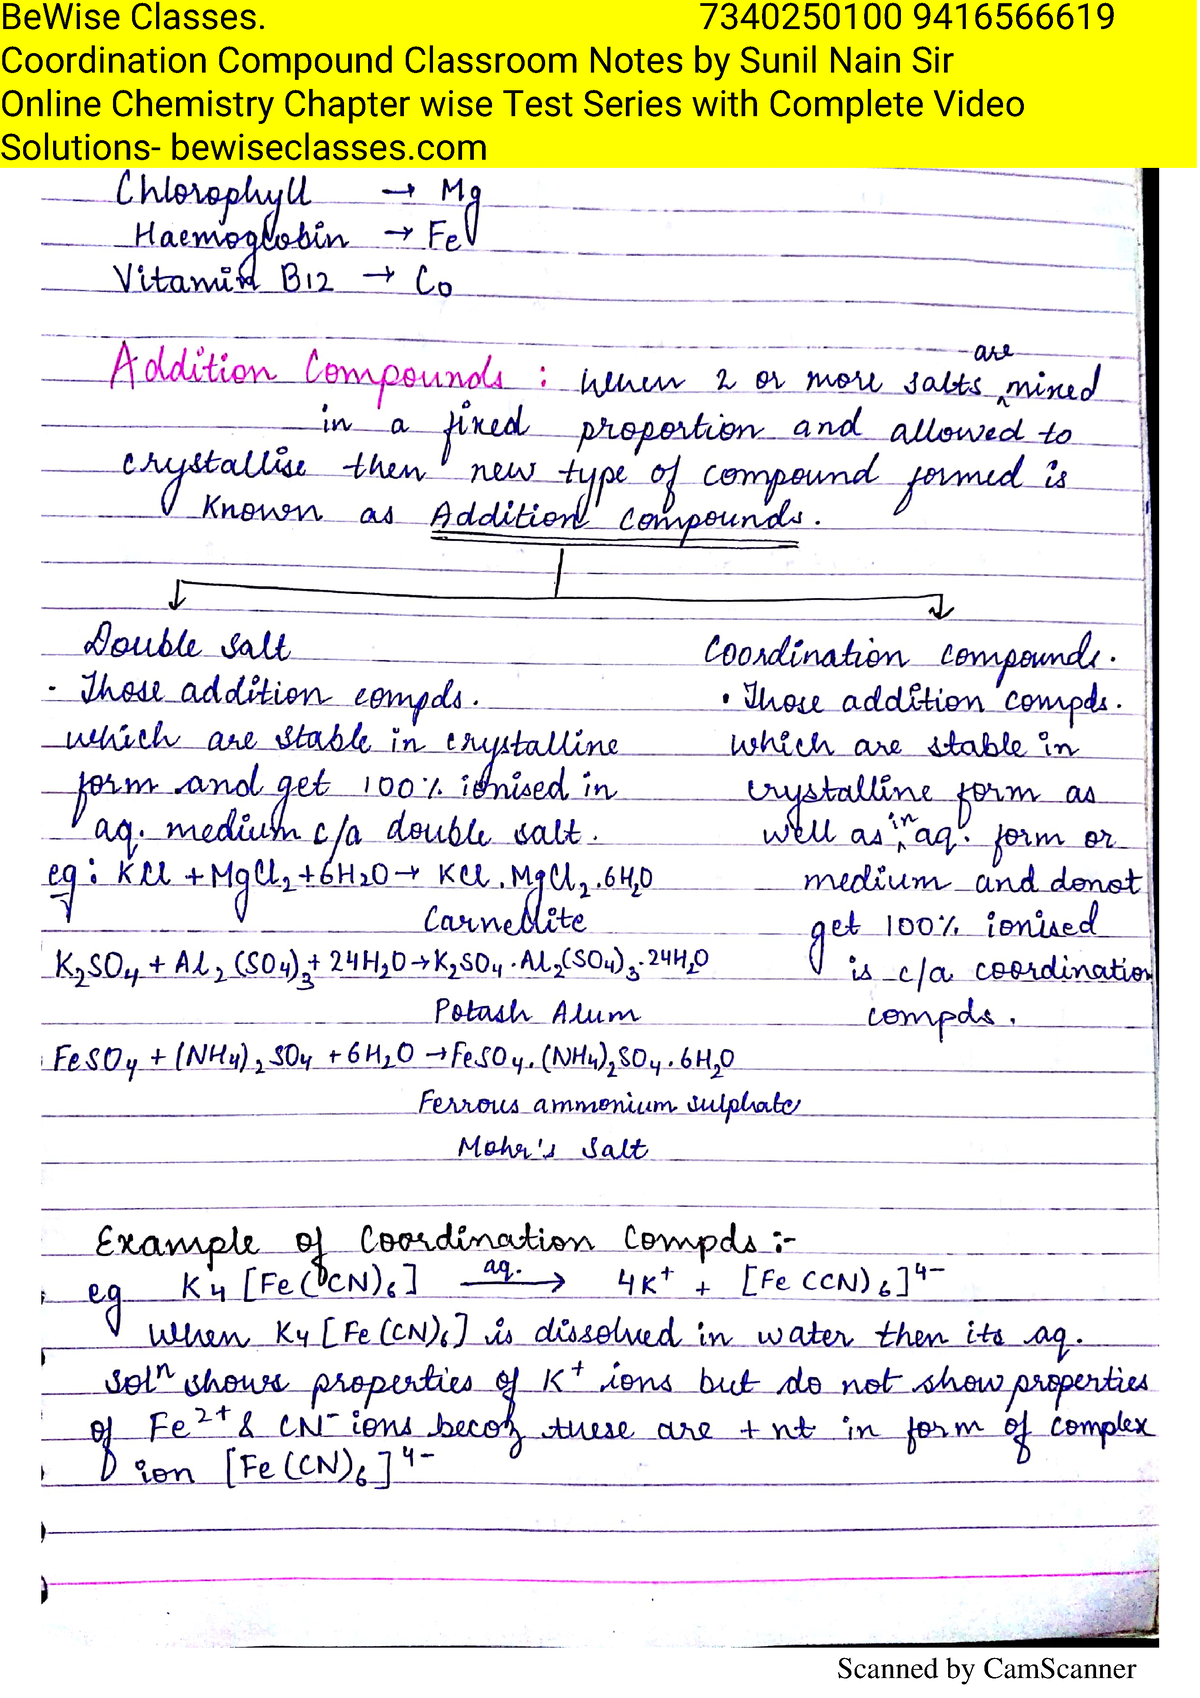 BeWise Classes. 7340250100 9416566619
Coordination Compound Classroom Notes by Sunil Nain Sir
Online Chemistry Chapter wise Test Series with Complete Video
Solutions- bewiseclasses.com
Chlorophyll → Mg
Haemoglobin → Fe
Vitamin B12 → Co
Addition Compounds : When 2 or more salts are mixed
in a fixed proportion and allowed to
crystallise then new type of compound formed is
Known as Addition Compounds.
Double Salt
· Those addition compds.
which are stable in crystalline
form and get 100% ionised in
aq. medium c/a double salt.
eg: KCl + MgCl₂ + 6H₂O → KCl.MgCl₂.6H₂O
Carnellite
K₂SO₄ + Al₂(SO₄)₃ + 24H₂O → K₂SO₄.Al₂(SO₄)₃.24H₂O
Potash Alum
FeSO₄ + (NH₄)₂SO₄ + 6H₂O → FeSO₄.(NH₄)₂SO₄.6H₂O
Ferrous ammonium sulphate
Mohr's Salt
Coordination compounds.
• Those addition compds.
which are stable in
crystalline form as
well as in aq. form or
medium and donot
get 100% ionised
is c/a coordination
compds.
Example of Coordination Compds :-
eg K₄[Fe(CN)₆] aq.→ 4K⁺ + [Fe(CN)₆]⁴⁻
When K₄[Fe(CN)₆] is dissolved in water then its aq.
solⁿ shows properties of K⁺ ions but do not show properties
of Fe²⁺ & CN⁻ ions becoz these are +nt in form of complex
ion [Fe(CN)₆]⁴⁻
Scanned by CamScanner